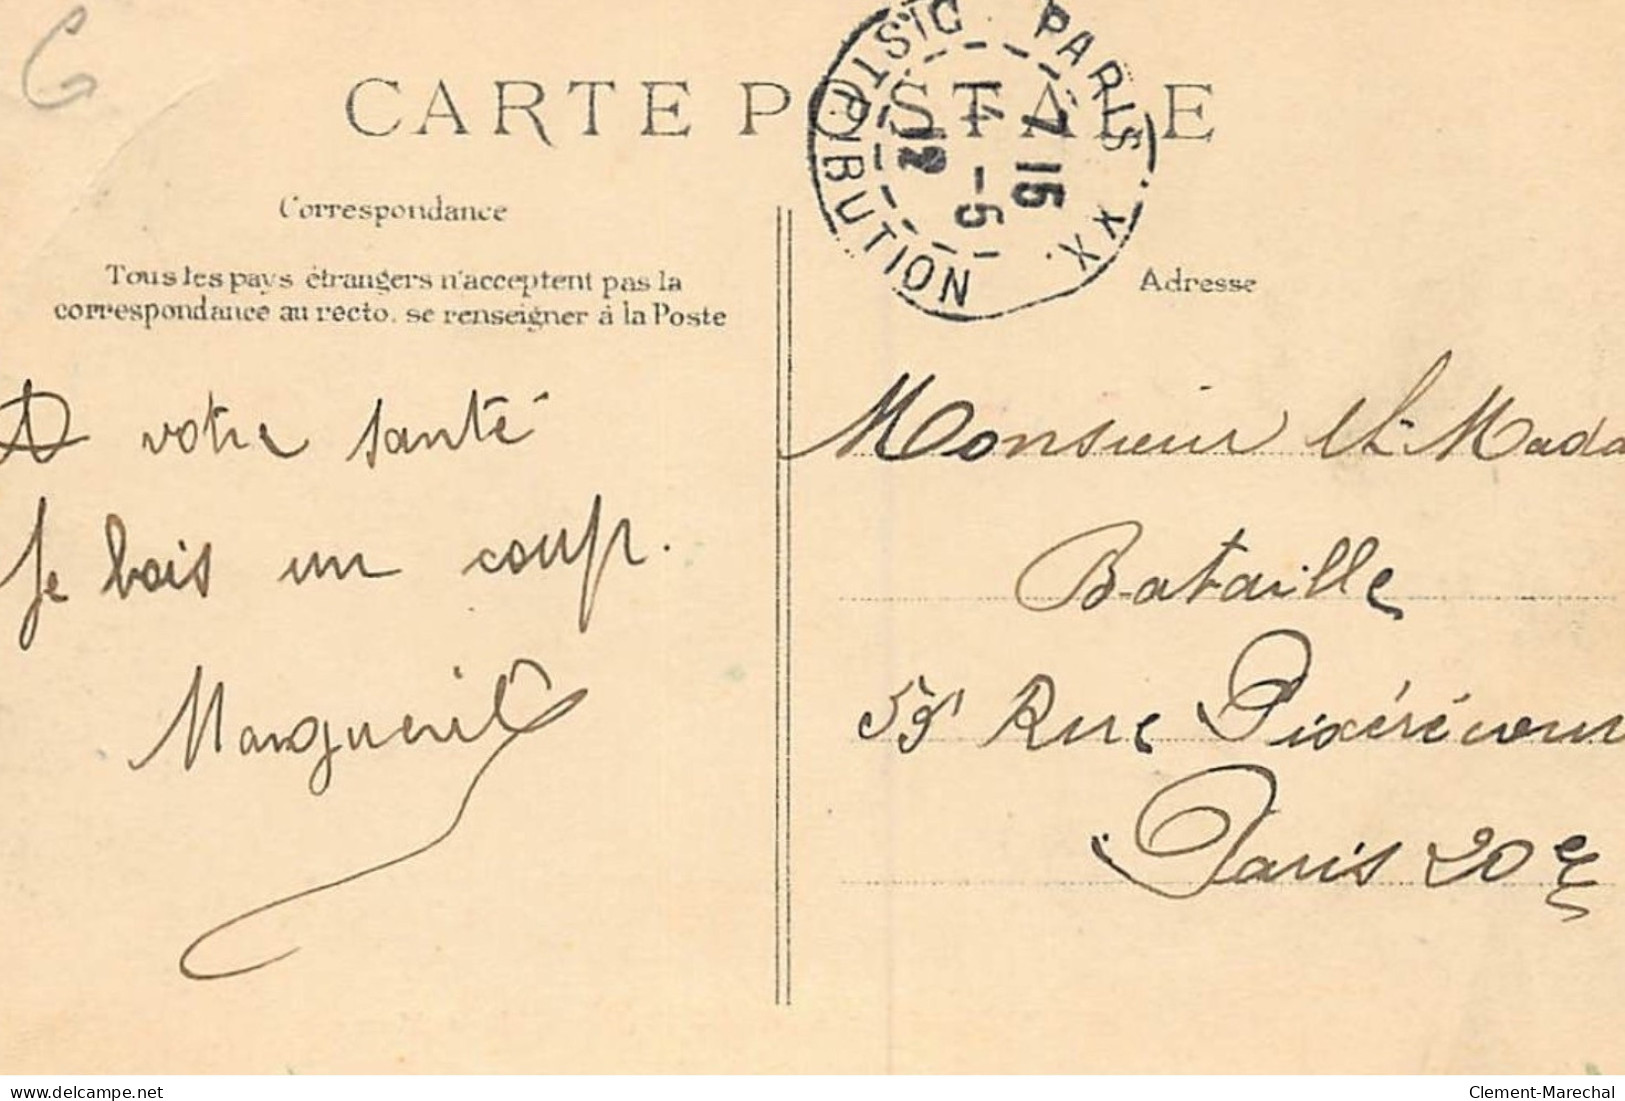 CARTE POSTALE
DISTRIBUTION PARIS XX.
7 15
4 - 5
12
Correspondance
Tous les pays étrangers n'acceptent pas la
correspondance au recto. se renseigner à la Poste
A votre santé
Je bois un coup.
Marguerite
Adresse
Monsieur et Mada
Bataille
Rue Pixérécour
Paris 20e
delcampe.net
Clement-Marechal